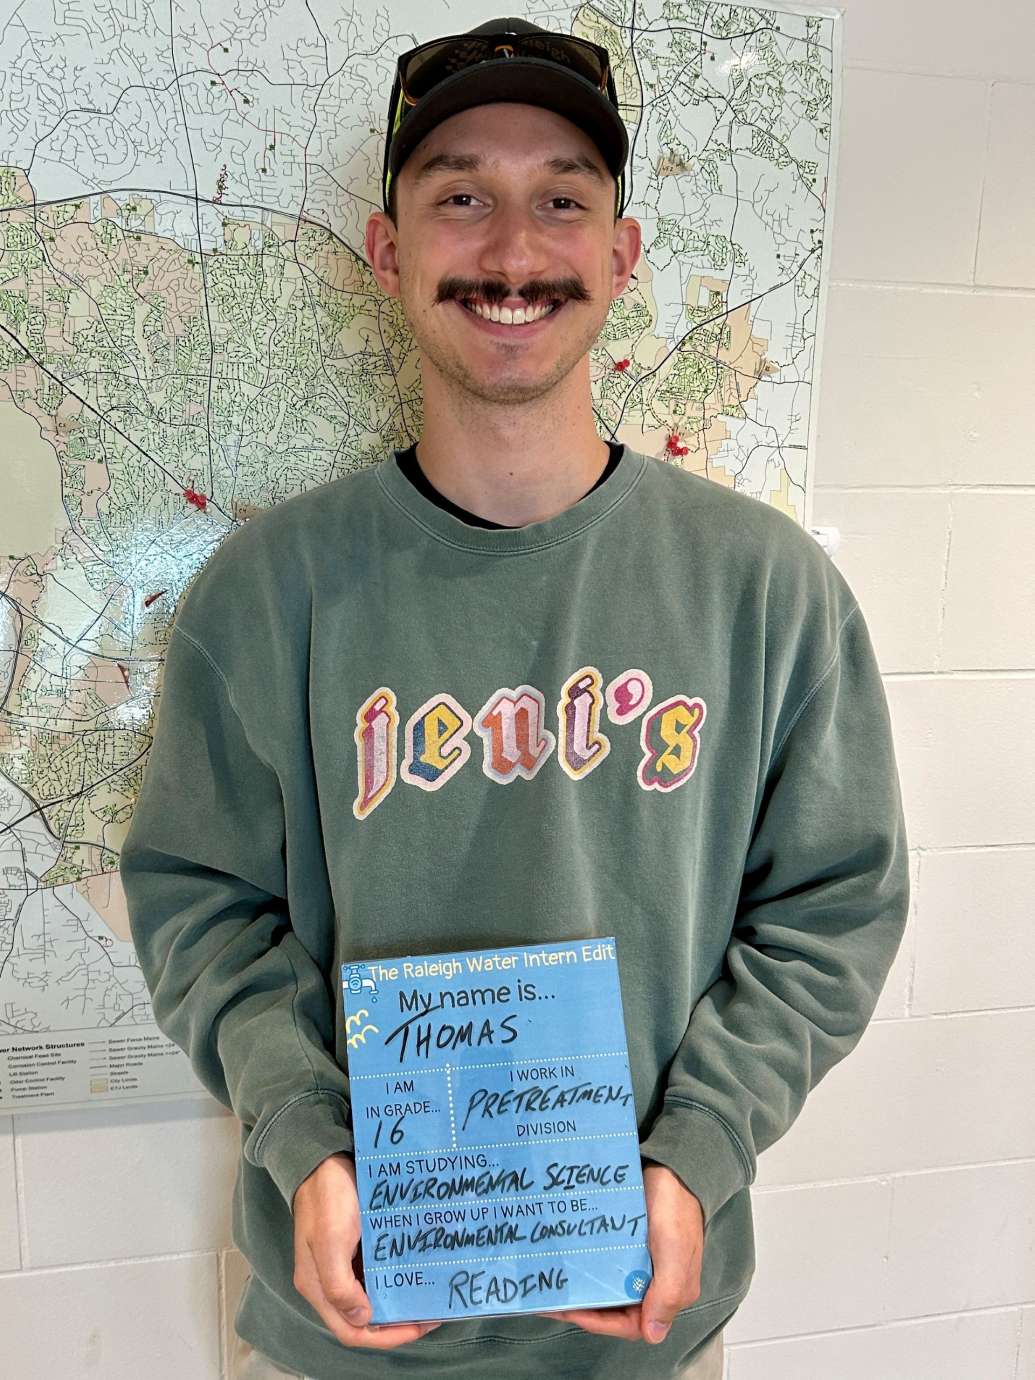 jeni's
The Raleigh Water Intern Edit
My name is...
THOMAS
I AM
IN GRADE...
16
I WORK IN
PRETREATMENT
DIVISION
I AM STUDYING...
ENVIRONMENTAL SCIENCE
WHEN I GROW UP I WANT TO BE...
ENVIRONMENTAL CONSULTANT
I LOVE...
READING
er Network Structures
Chemical Feed Site
Corrosion Control Facility
Lift Station
Odor Control Facility
Pump Station
Treatment Plant
Sewer Force Mains
Major Roads
Streets
City Limits
ETJ Limits